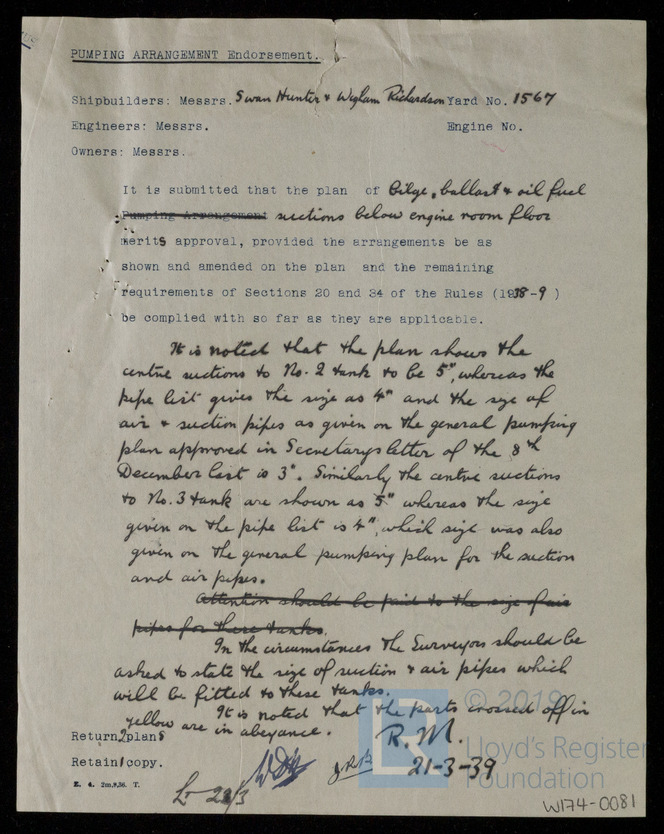 PUMPING ARRANGEMENT Endorsement.
Shipbuilders: Messrs. Swan Hunter & Wigham Richardson Yard No. 1567
Engineers: Messrs. Engine No.
Owners: Messrs.
It is submitted that the plan of bilge, ballast & oil fuel
Pumping Arrangement suctions below engine room floor
merits approval, provided the arrangements be as
shown and amended on the plan and the remaining
requirements of Sections 20 and 34 of the Rules (1938-9 )
be complied with so far as they are applicable.
It is noted that the plan shows the
centre suctions to No. 2 tank to be 5", whereas the
pipe list gives the size as 4" and the size of
air & suction pipes as given on the general pumping
plan approved in Secretarys letter of the 8th
December last is 3". Similarly the centre suctions
to No. 3 tank are shown as 5" whereas the size
given on the pipe list is 4", which size was also
given on the general pumping plan for the suction
and air pipes.
Attention should be paid to the size of air
pipes for these tanks.
In the circumstances the Surveyors should be
asked to state the size of suction & air pipes which
will be fitted to these tanks.
It is noted that the parts crossed off in
yellow are in abeyance.
Return 2 plans
R.M.
Retain 1 copy.
21-3-39
E. 4. 2m.9.36. T.
© 2019
Lloyd's Register
Foundation
W174-0081